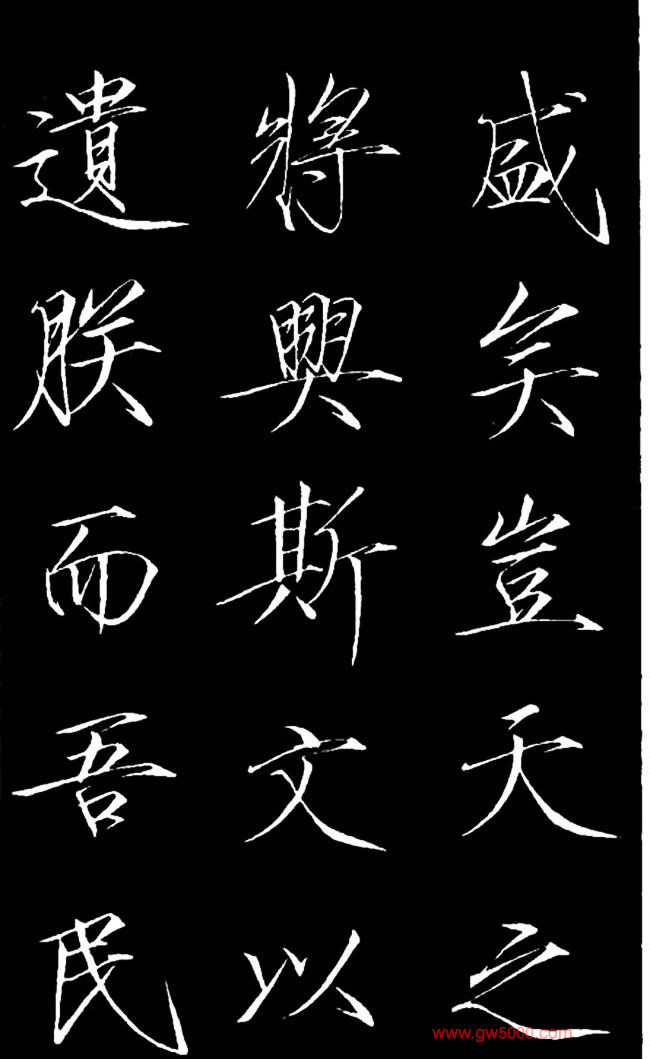 盛矣豈天之
將興斯文以
遺朕而吾民
www.gw5000.com